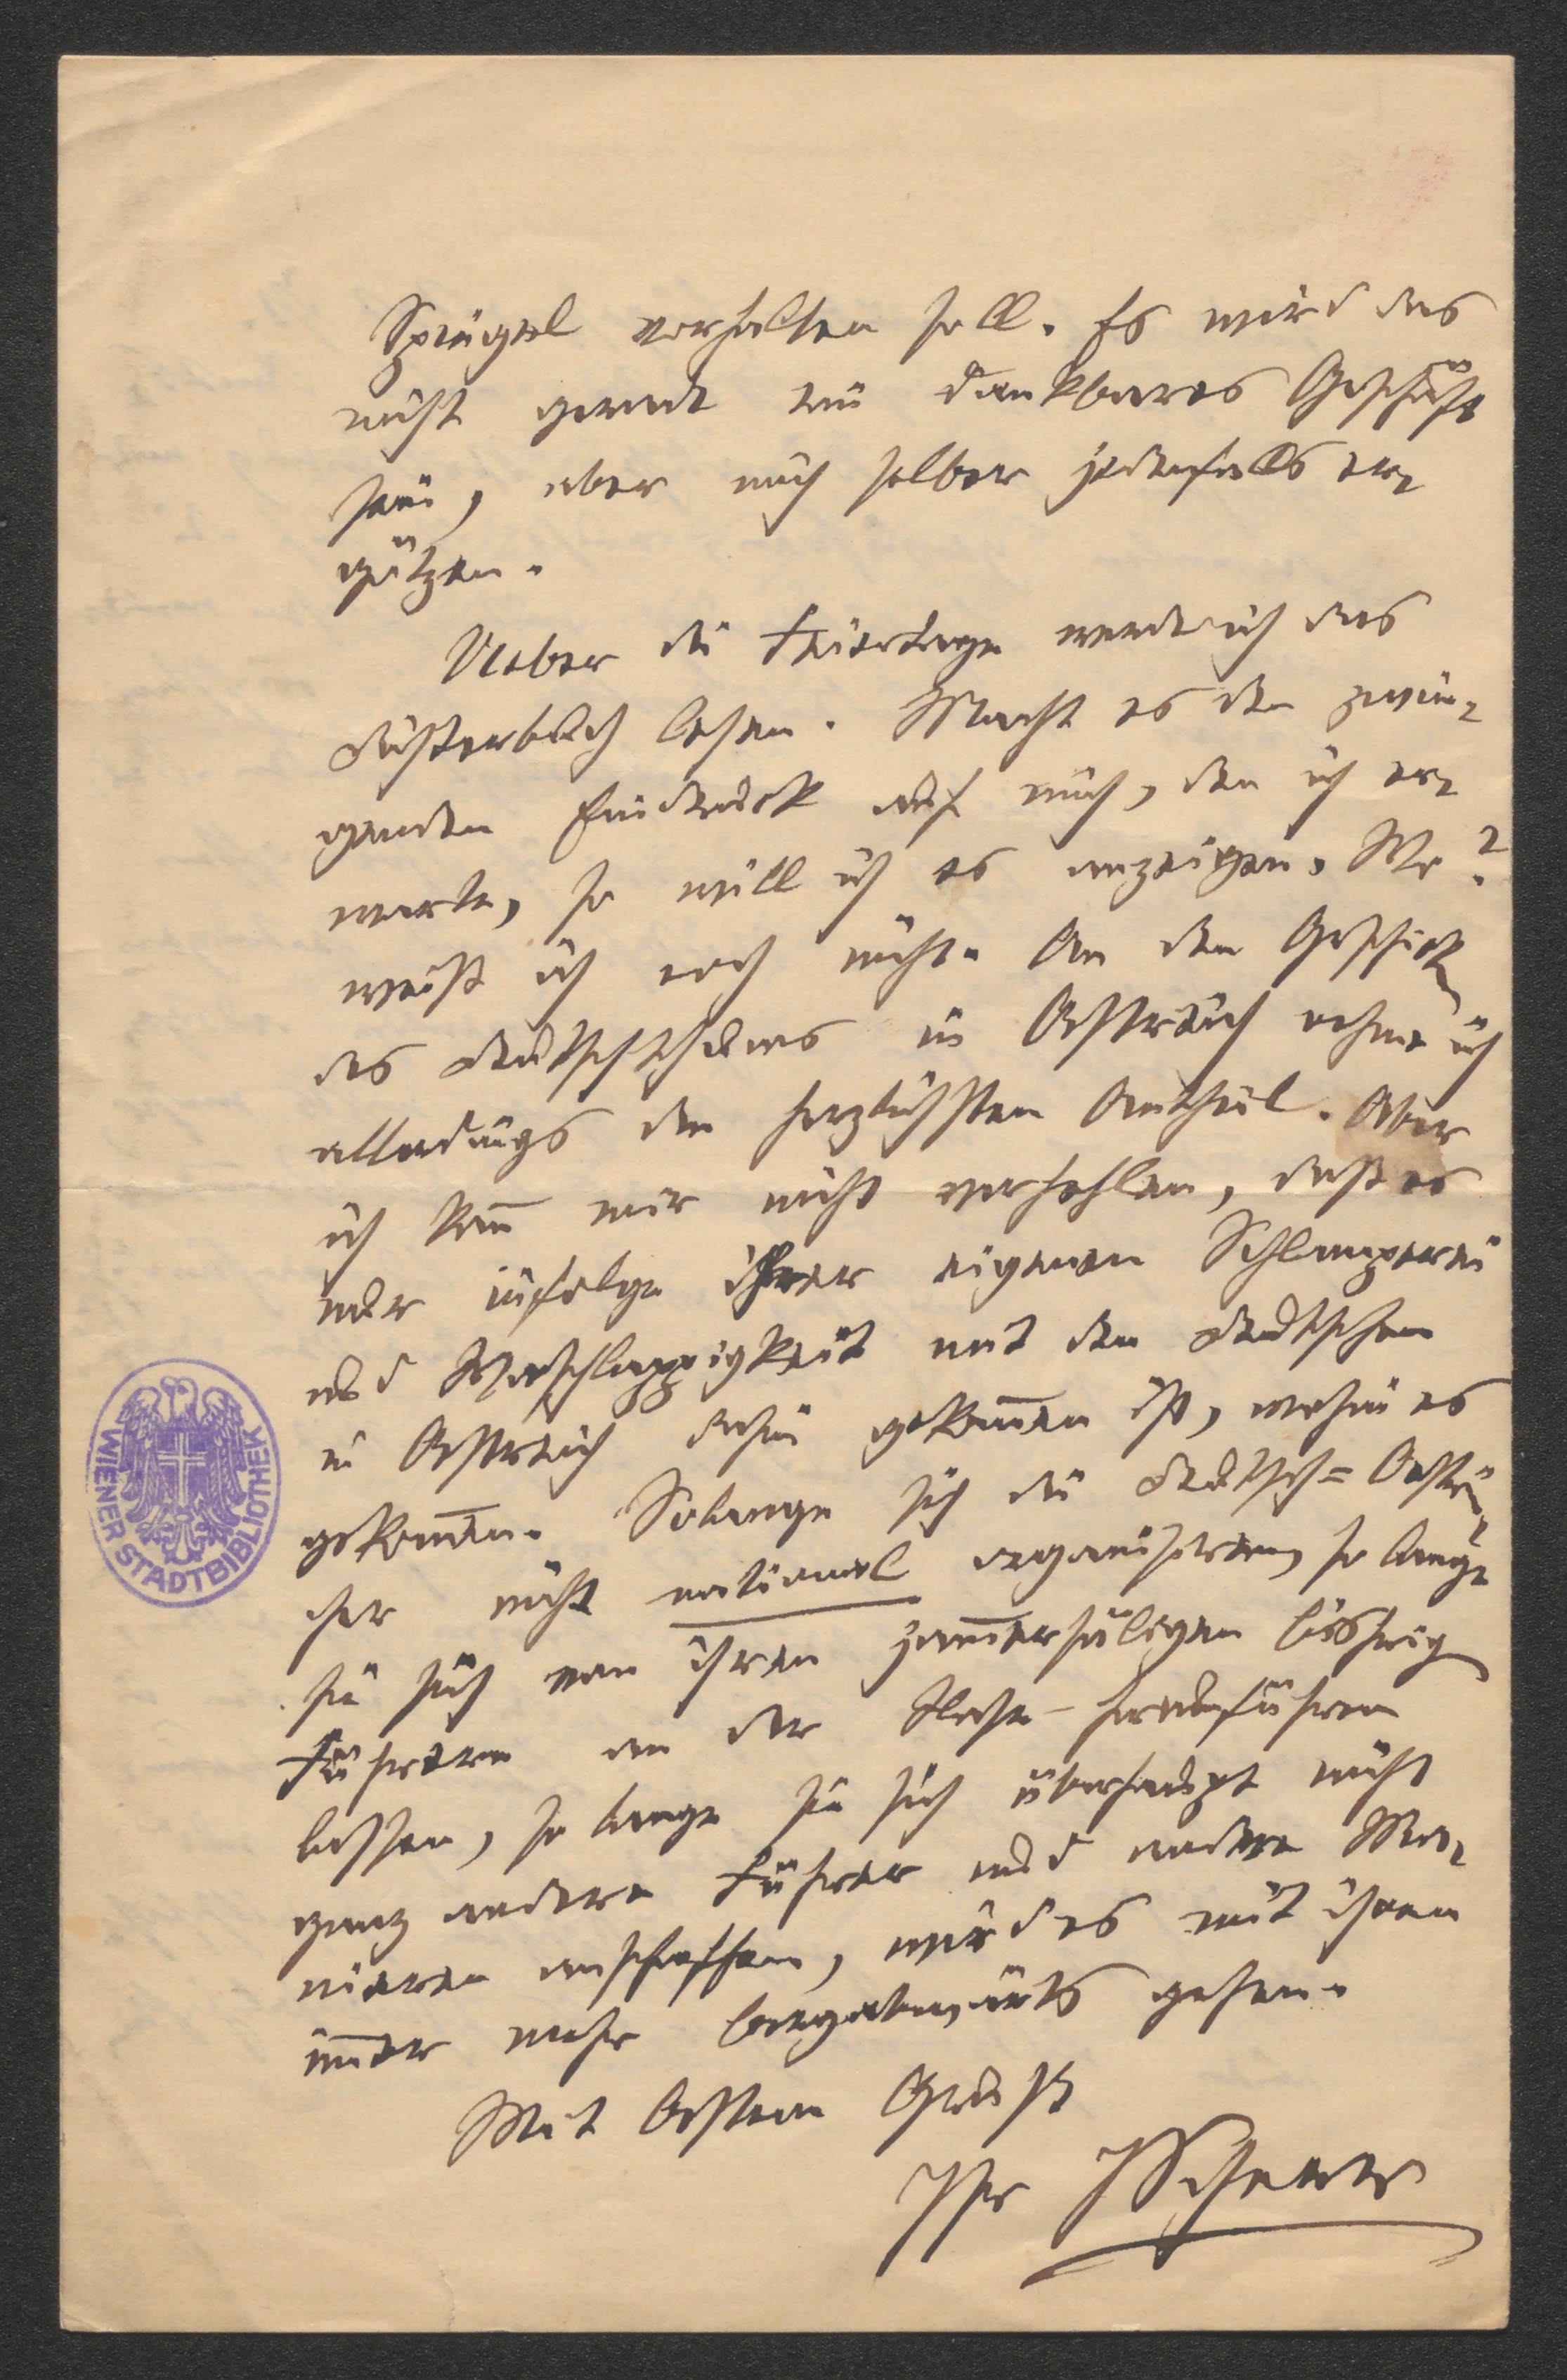 Spiegel vorhalten soll. Es wird das
nicht gerade ein dankbares Geschäft
sein, aber mich selber jedenfalls er-
götzen.
Ueber die Feiertage werde ich das
Dichterbuch lesen. Macht es den zwin-
genden Eindruck auf mich, den ich er-
warte, so will ich es anzeigen. Wo?
weiß ich noch nicht. An den Geschicken
des Deutschthums in Oestreich nehme ich
allerdings den herzlichsten Antheil. Aber
ich kann mir nicht verhehlen, daß es
nur infolge ihrer eigenen Schlamperei
und Waschlappigkeit mit den Deutschen
in Oestreich dahin gekommen ist, wohin es
gekommen. Solange sich die Deutsch=Oestrei-
cher nicht national organisiren, so lange
sie sich von ihren jammerseligen bisherigen
Führern an der Nase herumführen
lassen, so lange sie sich überhaupt nicht
ganz andere Führer und andere Ma-
nieren anschaffen, wird es mit ihnen
immer mehr bergabwärts gehen.
Mit bestem Gruß
Ihr JScherr
WIENER STADTBIBLIOTHEK